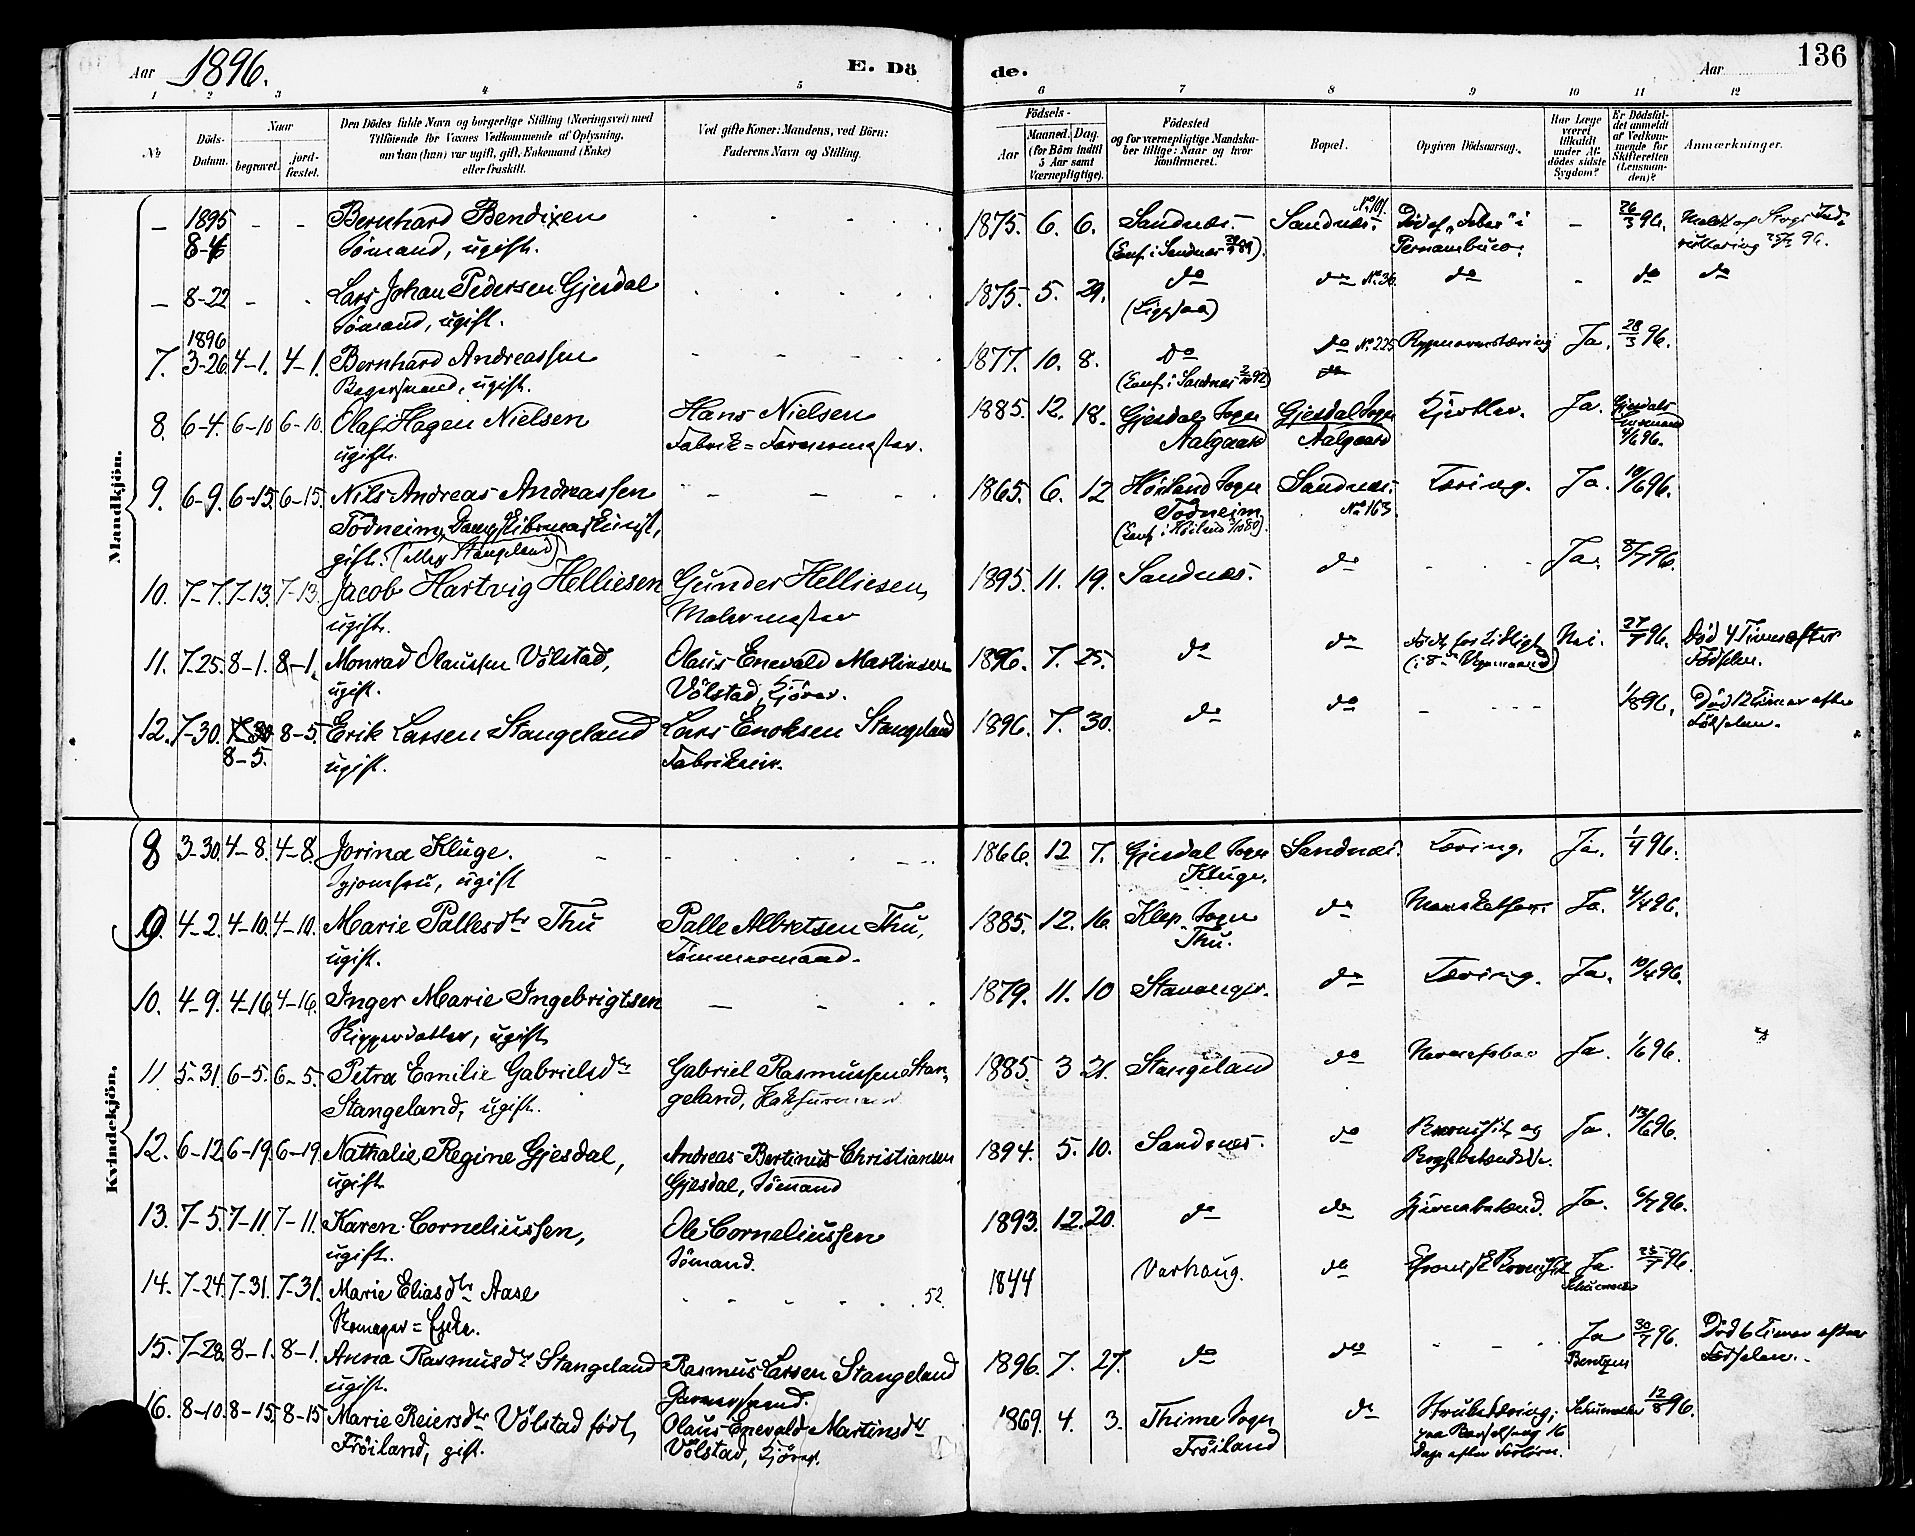 Aar 1896. E. Dö
de. Aar 136
1 2 3 4 5
6 7 8 9 10 11 12
No
Döds-
Datum.
Naar
begravet.
jord-
fæstet.
Den Dödes fulde Navn og borgerlige Stilling (Næringsvei) med
Tilföiende for Voxnes Vedkommende af Oplysning,
om han (hun) var ugift, gift, Enkemand (Enke)
eller fraskilt.
Ved gifte Koner: Mandens, ved Börn:
Faderens Navn og Stilling.
Födsels-
Aar
Maaned. Dag.
(for Börn indtil
5 Aar samt
Værnepligtige).
Födested
og for værnepligtige Mandska-
ber tillige: Naar og hvor
konfirmeret.
Bopæl.
Opgiven Dödsaarsag.
Har Læge
været
tilkaldt
under Af-
dödes sidste
Sygdom?
Er Dödsfal-
det anmeldt
af Vedkom-
mende for
Skifteretten
(Lensman-
den)?
Anmærkninger.
Mandkjön.
– 1895 8-4 - - Bernhard Bendixen
Sømand, ugift.
1875. 6. 6. Sandnæs. Sandnæs. No 101. Død af "Feber" i – 26/3 96.
(Conf. i Sandnæs 89). Pernambuco.
– 8-22 - - Lars Johan Pedersen Gjesdal
Sømand, ugift.
1875. 5. 29. do do No 36. do - do do
1896
7. 3-26. 4-1. 4-1. Bernhard Andreassen
ugift.
1877. 10. 8. do do No 225 Ja. 28/3 96.
(Conf. i Sandnæs 92) do
8. 6-4. 6-10 6-10. Olaf Hagen Nielsen Hans Nielsen
ugift. Fabrik=
1885. 12. 18. Gjesdal Sogn Gjesdal Sogn Kjertler. Ja. Gjesdals
Aalgaard Aalgaard 96.
9. 6-9. 6-15. 6-15. Nils Andreas Andreassen
Todneim,
gift. (eller Stangeland)
1865. 6. 12 Høiland Sogn Sandnæs. Tæring. Ja. 10/6 96.
Todneim No 163.
10. 7-7. 7-13. 7-13. Jacob Hartvig Helliesen Gunder Helliesen,
ugift. Malermester
1895. 11. 19. Sandnæs. do Ja. 8/7 96.
11. 7-25. 8-1. 8-1. Monrad Olaussen Völstad, Olaus Enevald Martinsen
ugift. Völstad, Kjører.
1896. 7. 25. do do Født for tidligt Nei. 27/7 96. Død 4 Timer efter
Fødselen.
12. 7-30. 7-30 8-5. Erik Larsen Stangeland Lars Enoksen Stangeland
8-5. ugift. Fabrikeier.
1896. 7. 30. do do 1/8 96. Død 12 Timer efter
Fødselen.
Kvindekjön.
8 3-30. 4-8. 4-8. Jorina Kluge.
Syjomfru, ugift
1866. 12 7. Gjesdal Sogn Sandnæs. Tæring. Ja. 1/4 96.
Kluge.
9. 4-2. 4-10. 4-10. Marie Pallesdtr Thu Palle Albretsen Thu,
ugift. Tømmermand.
1885. 12. 16. Klep Sogn do Ja. 4/4 96.
Thu.
10. 4-9. 4-16. 4-16. Inger Marie Ingebrigtsen
Skipperdatter, ugift
1879. 11. 10 Stavanger. do Tæring. Ja. 10/4 96.
11 5-31. 6-5. 6-5. Petra Emilie Gabrielsdtr Gabriel Rasmussen Stan-
Stangeland, ugift. geland,
1885. 3 21. Stangeland do Ja. 1/6 96.
12. 6-12. 6-19. 6-19. Nathalie Regine Gjesdal, Andreas Bertinus Christiansen
ugift. Gjesdal, Sømand
1894. 5. 10. Sandnæs. do Bronchit og Ja. 13/6 96.
13. 7-5. 7-11. 7-11. Karen Corneliussen, Ole Corneliussen
ugift. Sømand.
1893. 12. 20. do do Hjernebetænd. Ja. 6/7 96.
14. 7-24. 7-31. 7-31. Marie Eliasdtr Aase 52.
1844 Varhaug. do Chronisk Bronchit Ja. 25/7 96.
15. 7-28. 8-1. 8-1. Anna Rasmusdtr Stangeland Rasmus Larsen Stangeland
ugift. Garversvend.
1896. 7. 27. do do Ja 30/7 96. Død 6 Timer efter
Bentzen Fødselen.
16. 8-10. 8-15. 8-15 Marie Reiersdtr Völstad født Olaus Enevald Martinsdtr
Fröiland, gift. Völstad, Kjører.
1869. 4. 3. Thime Sogn do Strubetæring, 12/8 96.
Fröiland paa Barselseng 16
Dage efter Forløsn.